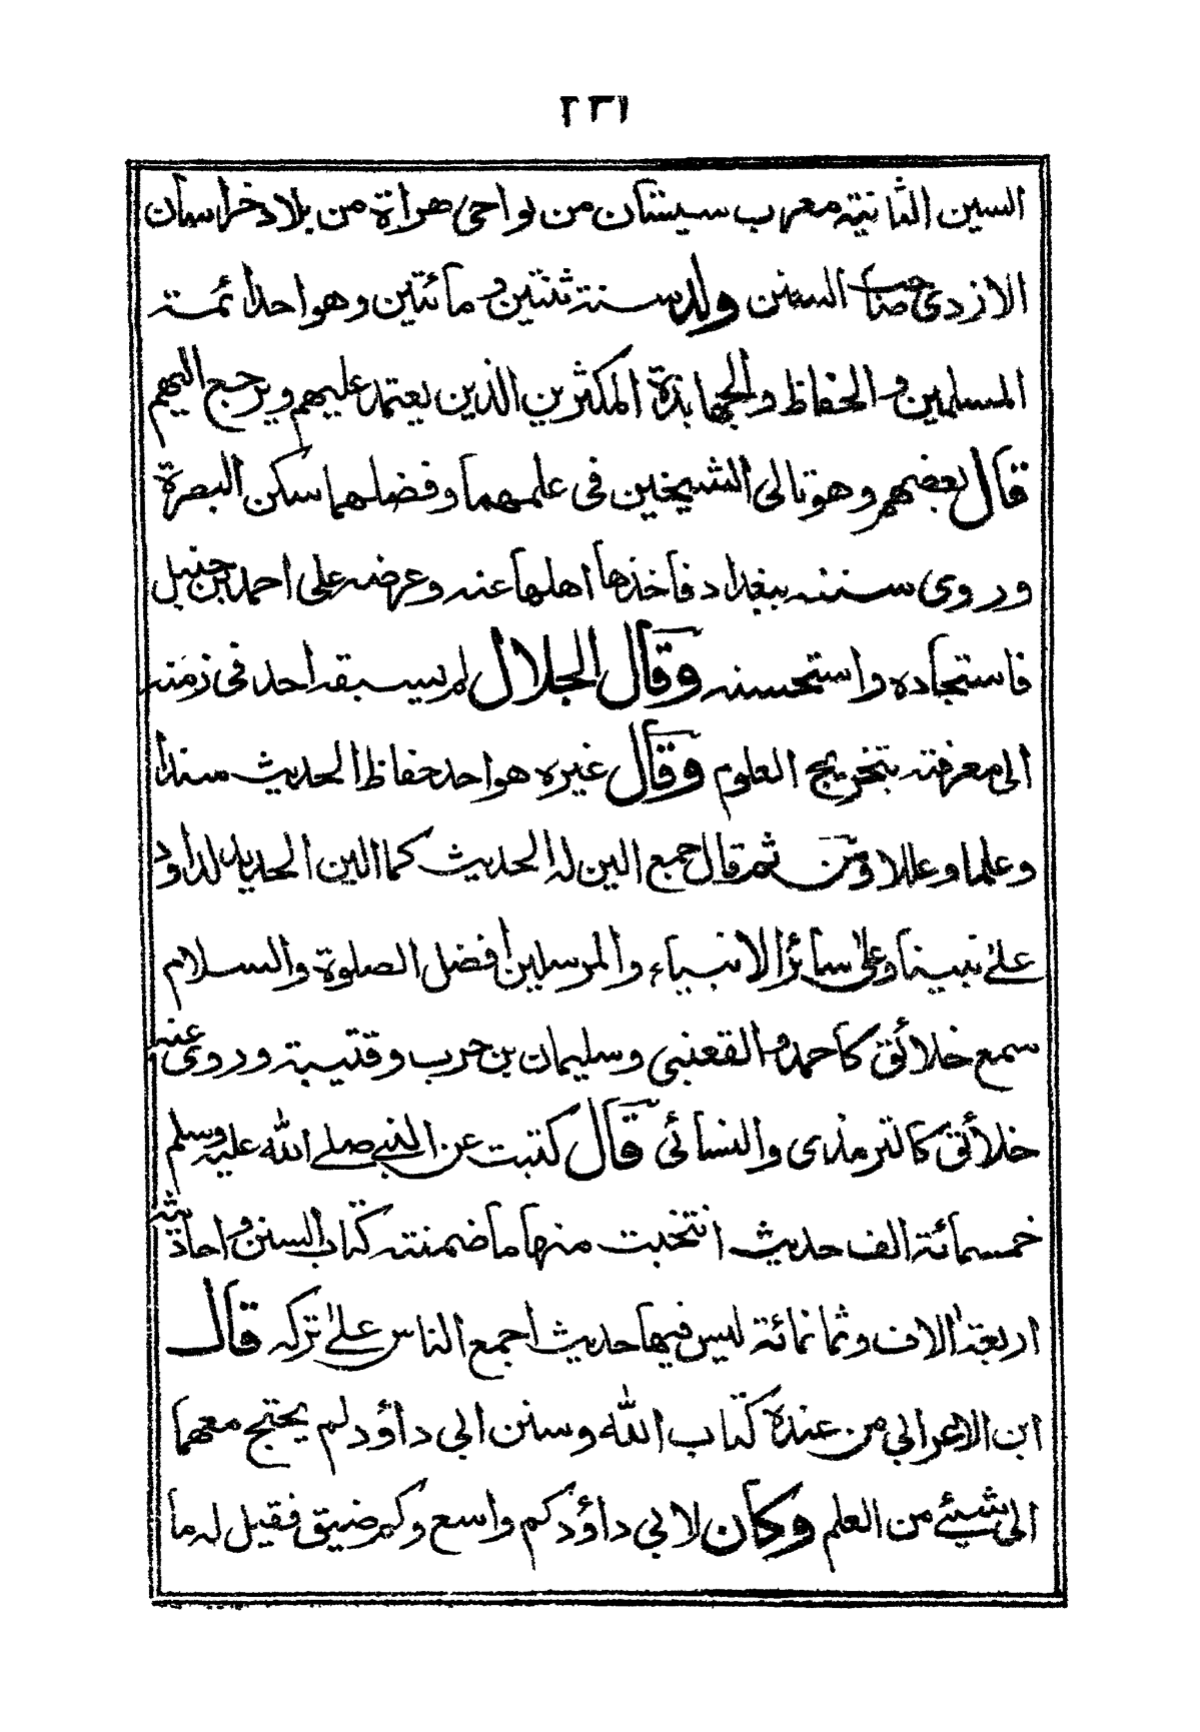 ٢٣١
السين الثانية معرب سيستان من نواحى هراة من بلاد خراسان
الازدى صاحب السنن ولد سنة ثنتين و مائتين وهو احد ائمة
المسلمين و الحفاظ والجهابذة المكثرين الذين يعتمد عليهم ويرجع اليهم
قال بعضهم وهو تالى الشيخين فى علمهما وفضلهما سكن البصرة
وروى سننه ببغداد فاخذها اهلها عنه وعرضه على احمد بن حنبل
فاستجاده واستحسنه وقال الجلال لم يسبقه احد فى زمنه
الى معرفته بتخريج العلوم وقال غيره هو احد حفاظ الحديث سندا
وعلما وعللا ومن ثم قال جمع الين له الحديث كما الين الحديد لداود
على نبينا وعلى سائر الانبياء والمرسلين افضل الصلوة والسلام
سمع خلائق كاحمد و القعنبى وسليمان بن حرب وقتيبة وروى عنه
خلائق كالترمذى والنسائى قال كتبت عن النبى صلى الله عليه وسلم
خمسمائة الف حديث انتخبت منها ما ضمنته كتاب السنن و احاديثه
اربعة الاف وثمانمائة ليس فيها حديث اجمع الناس على تركه قال
ابن الاعرابى من عنده كتاب الله وسنن ابى داؤد لم يحتج معهما
الى شيئ من العلم وكان لابى داؤد كم واسع وكم ضيق فقيل له ما